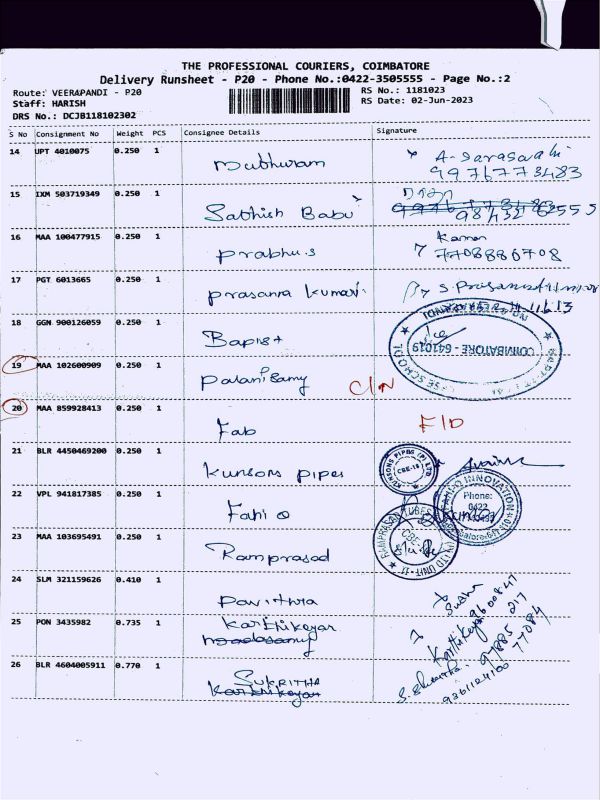 THE PROFESSIONAL COURIERS, COIMBATORE
Delivery Runsheet - P20 - Phone No.:0422-3505555 - Page No.:2
Route: VEERAPANDI - P20
RS No.: 1181023
Staff: HARISH
RS Date: 02-Jun-2023
DRS No.: DCJB118102302
S No Consignment No Weight PCS Consignee Details Signature
14 UPT 4010075 0.250 1 Mubhuram A. Saraswathi
9976773483
15 IXM 503719349 0.250 1 Sabhish Babu
98432 62555
16 MAA 100477915 0.250 1 Prabhu.s
7708886708
17 PGT 6013665 0.250 1 Prasanna Kumari.
18 GGN 900126059 0.250 1 Bapist
COIMBATORE - 641019
19 MAA 102600909 0.250 1 Palanisamy C/N
20 MAA 859928413 0.250 1 Fab F/D
21 BLR 4450469200 0.250 1 Kunsons Pipes
KUNSONS PIPES (P) LTD
CBE-19
22 VPL 941817385 0.250 1 Fahi o
INNOVATION
Phone:
0422
23 MAA 103695491 0.250 1 Ramprasad
24 SLM 321159626 0.410 1 Pavithra
Sudha
25 PON 3435982 0.735 1 Karthikeyan
Karthikeyan
97885
77084
26 BLR 4604005911 0.770 1 SUKRITHA
Karthikeyan
9361124100